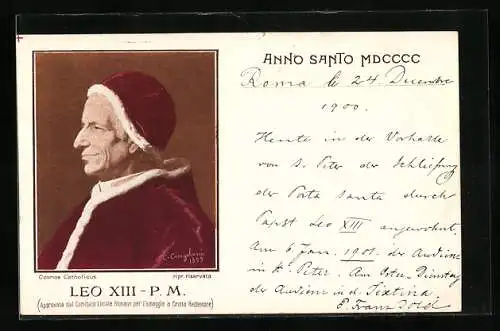 ANNO SANTO MDCCCC
Roma le 24. Decembre
1900.
Heute in der Vorhalle
von S. Peter der Schließung
der Porta Santa durch
Papst Leo XIII angewohnt.
Am 6 Jan. 1901. der Audienz
in St. Peter. Am Oster-Dienstag
der Audienz in d. Sixtina.
Franz
1899
Cosmos Catholicus
ripr. riservata
LEO XIII - P. M.
(Approvata dal Comitato Locale Romano per l'Omaggio a Cristo Redentore)